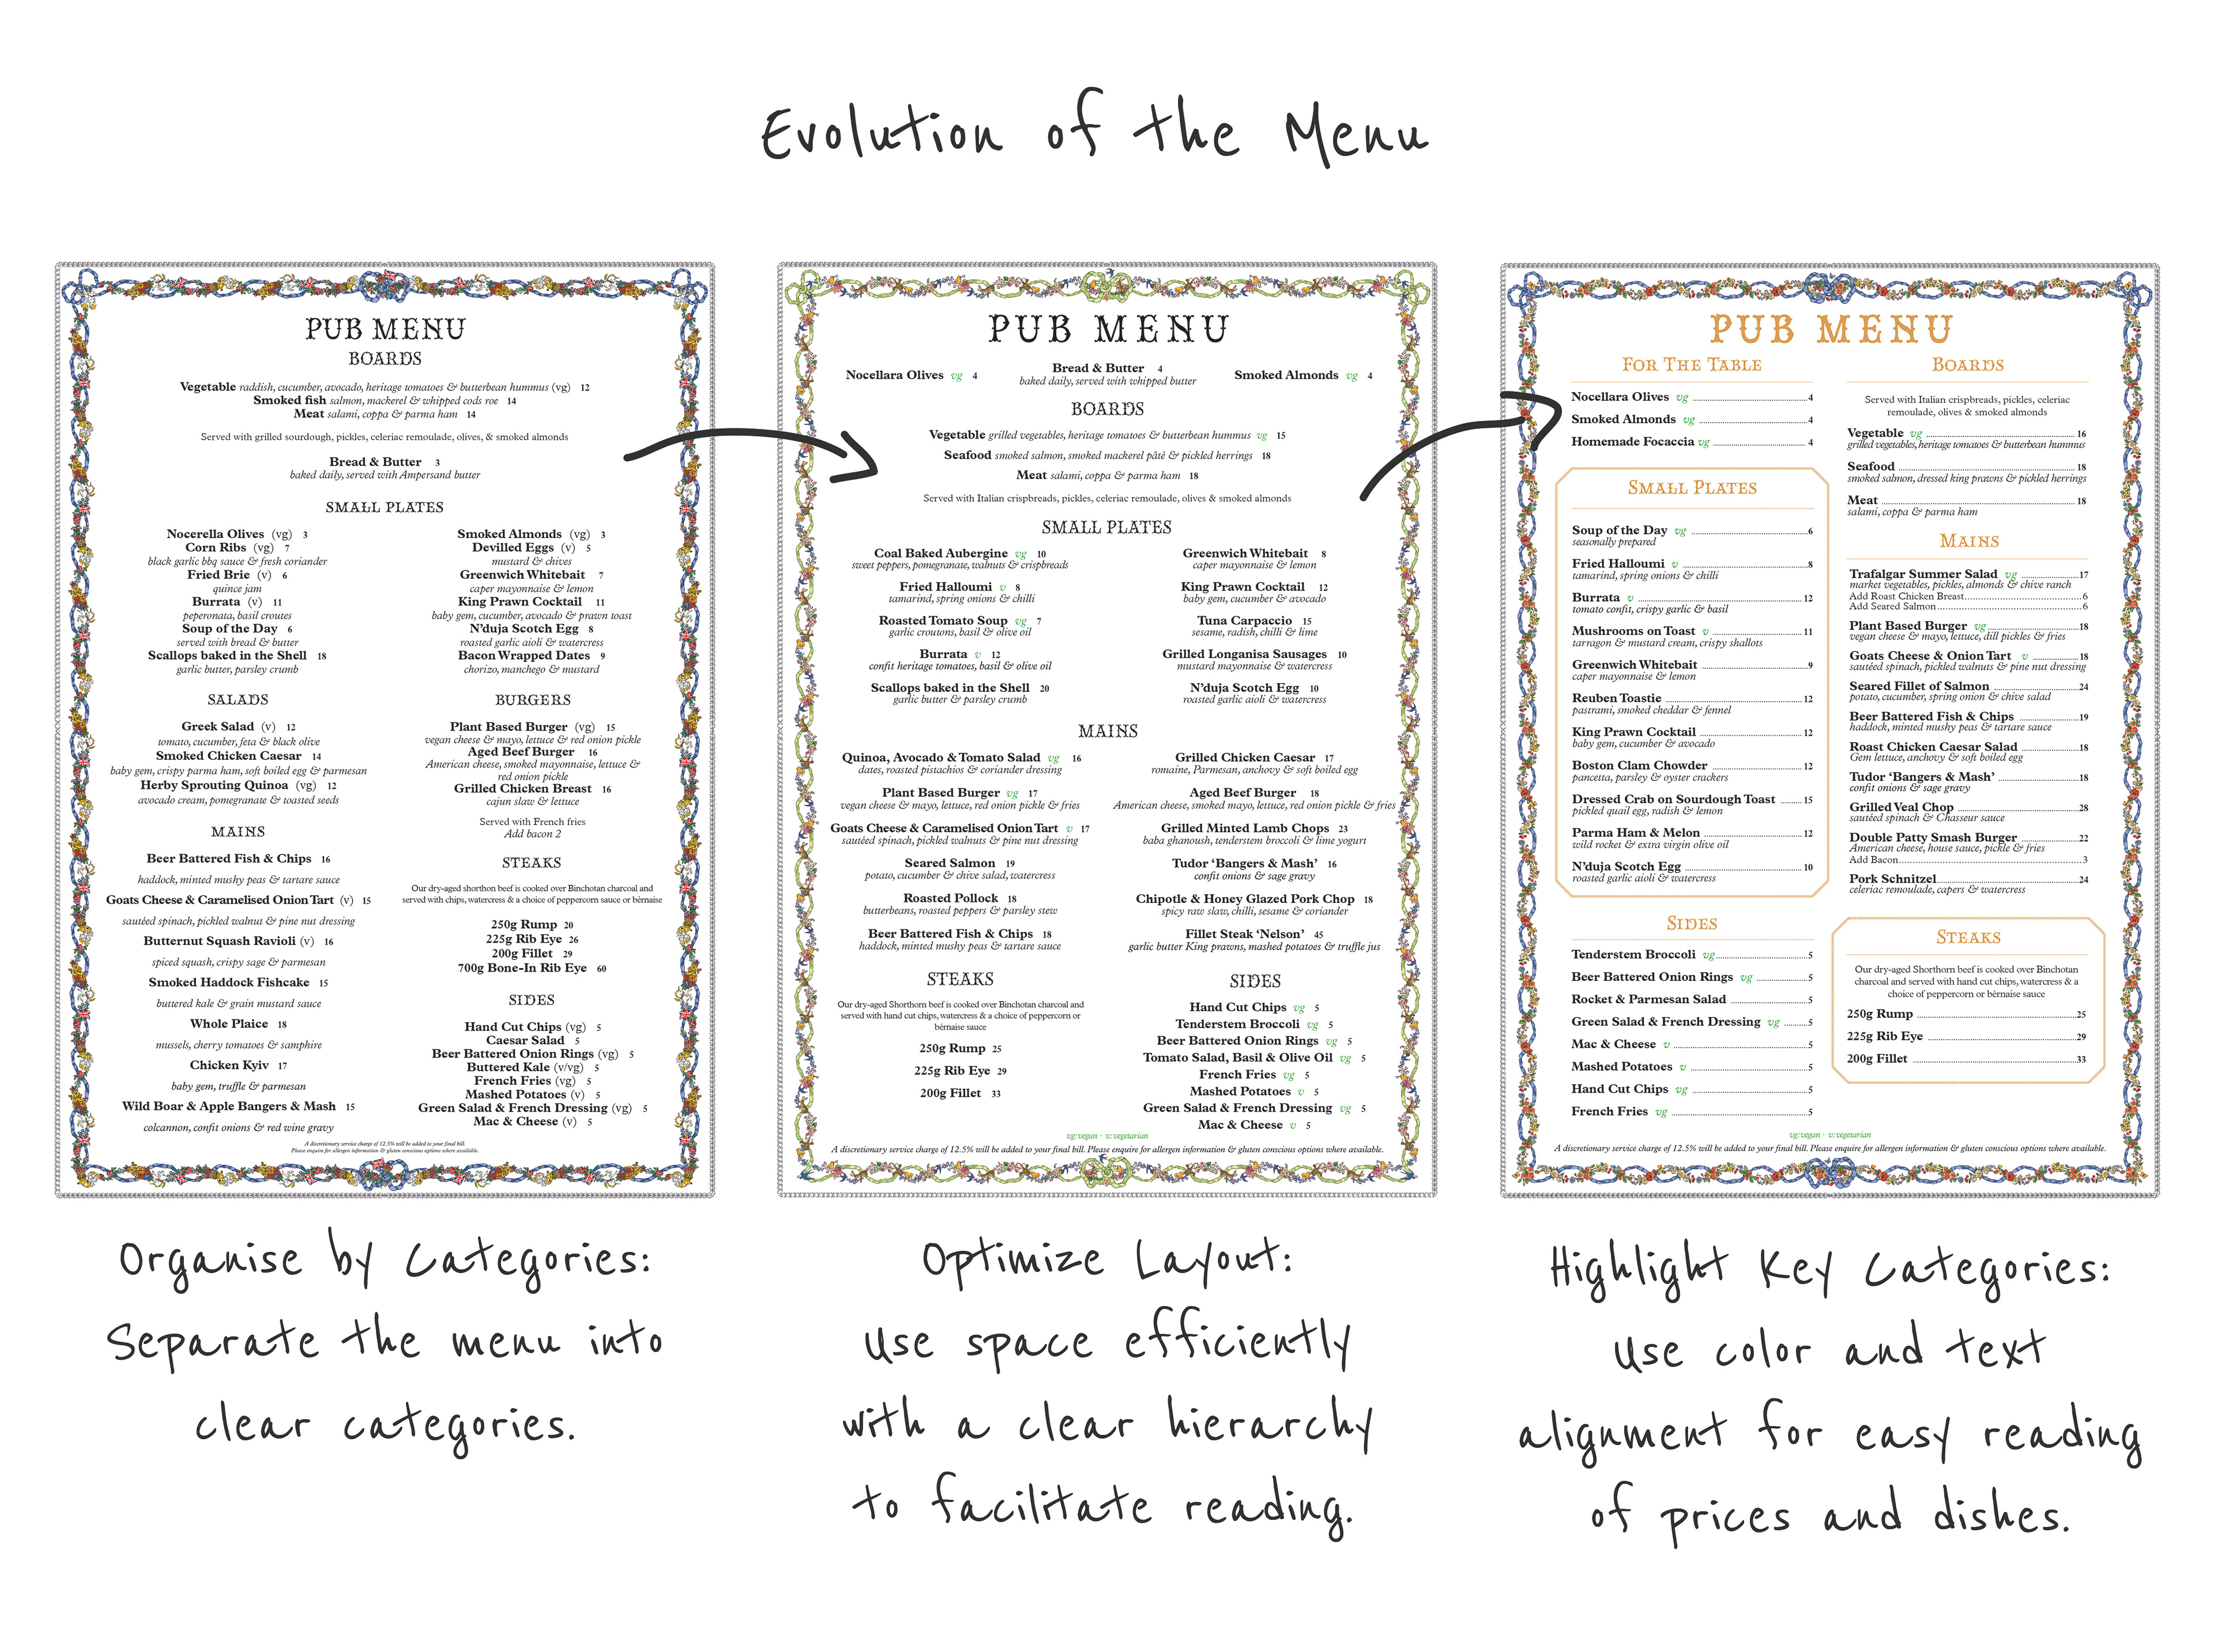 Evolution of the Menu
PUB MENU
BOARDS
Vegetable raddish, cucumber, avocado, heritage tomatoes & butterbean hummus (vg) 12
Smoked fish salmon, mackerel & whipped cods roe 14
Meat salami, coppa & parma ham 14
Served with grilled sourdough, pickles, celeriac remoulade, olives, & smoked almonds
Bread & Butter 3
baked daily, served with Ampersand butter
SMALL PLATES
Nocerella Olives (vg) 3
Corn Ribs (vg) 7
black garlic bbq sauce & fresh coriander
Fried Brie (v) 6
quince jam
Burrata (v) 11
peperonata, basil croutes
Soup of the Day 6
served with bread & butter
Scallops baked in the Shell 18
garlic butter, parsley crumb
Smoked Almonds (vg) 3
Devilled Eggs (v) 5
mustard & chives
Greenwich Whitebait 7
caper mayonnaise & lemon
King Prawn Cocktail 11
baby gem, cucumber, avocado & prawn toast
N'duja Scotch Egg 8
roasted garlic aioli & watercress
Bacon Wrapped Dates 9
chorizo, manchego & mustard
SALADS
Greek Salad (v) 12
tomato, cucumber, feta & black olive
Smoked Chicken Caesar 14
baby gem, crispy parma ham, soft boiled egg & parmesan
Herby Sprouting Quinoa (vg) 12
avocado cream, pomegranate & toasted seeds
MAINS
Beer Battered Fish & Chips 16
haddock, minted mushy peas & tartare sauce
Goats Cheese & Caramelised Onion Tart (v) 15
sautéed spinach, pickled walnut & pine nut dressing
Butternut Squash Ravioli (v) 16
spiced squash, crispy sage & parmesan
Smoked Haddock Fishcake 15
buttered kale & grain mustard sauce
Whole Plaice 18
mussels, cherry tomatoes & samphire
Chicken Kyiv 17
baby gem, truffle & parmesan
Wild Boar & Apple Bangers & Mash 15
colcannon, confit onions & red wine gravy
BURGERS
Plant Based Burger (vg) 15
vegan cheese & mayo, lettuce & red onion pickle
Aged Beef Burger 16
American cheese, smoked mayonnaise, lettuce &
red onion pickle
Grilled Chicken Breast 16
cajun slaw & lettuce
Served with French fries
Add bacon 2
STEAKS
Our dry-aged shorthon beef is cooked over Binchotan charcoal and
served with chips, watercress & a choice of peppercorn sauce or bérnaise
250g Rump 20
225g Rib Eye 26
200g Fillet 29
700g Bone-In Rib Eye 60
SIDES
Hand Cut Chips (vg) 5
Caesar Salad 5
Beer Battered Onion Rings (vg) 5
Buttered Kale (v/vg) 5
French Fries (vg) 5
Mashed Potatoes (v) 5
Green Salad & French Dressing (vg) 5
Mac & Cheese (v) 5
A discretionary service charge of 12.5% will be added to your final bill.
Please enquire for allergen information & gluten conscious options where available.
PUB MENU
Nocellara Olives vg 4
Bread & Butter 4
baked daily, served with whipped butter
Smoked Almonds vg 4
BOARDS
Vegetable grilled vegetables, heritage tomatoes & butterbean hummus vg 15
Seafood smoked salmon, smoked mackerel pâté & pickled herrings 18
Meat salami, coppa & parma ham 18
Served with Italian crispbreads, pickles, celeriac remoulade, olives & smoked almonds
SMALL PLATES
Coal Baked Aubergine vg 10
sweet peppers, pomegranate, walnuts & crispbreads
Fried Halloumi v 8
tamarind, spring onions & chilli
Roasted Tomato Soup vg 7
garlic croutons, basil & olive oil
Burrata v 12
confit heritage tomatoes, basil & olive oil
Scallops baked in the Shell 20
garlic butter & parsley crumb
Greenwich Whitebait 8
caper mayonnaise & lemon
King Prawn Cocktail 12
baby gem, cucumber & avocado
Tuna Carpaccio 15
sesame, radish, chilli & lime
Grilled Longanisa Sausages 10
mustard mayonnaise & watercress
N'duja Scotch Egg 10
roasted garlic aioli & watercress
MAINS
Quinoa, Avocado & Tomato Salad vg 16
dates, roasted pistachios & coriander dressing
Plant Based Burger vg 17
vegan cheese & mayo, lettuce, red onion pickle & fries
Goats Cheese & Caramelised Onion Tart v 17
sautéed spinach, pickled walnuts & pine nut dressing
Seared Salmon 19
potato, cucumber & chive salad, watercress
Roasted Pollock 18
butterbeans, roasted peppers & parsley stew
Beer Battered Fish & Chips 18
haddock, minted mushy peas & tartare sauce
Grilled Chicken Caesar 17
romaine, Parmesan, anchovy & soft boiled egg
Aged Beef Burger 18
American cheese, smoked mayo, lettuce, red onion pickle & fries
Grilled Minted Lamb Chops 23
baba ghanoush, tenderstem broccoli & lime yogurt
Tudor 'Bangers & Mash' 16
confit onions & sage gravy
Chipotle & Honey Glazed Pork Chop 18
spicy raw slaw, chilli, sesame & coriander
Fillet Steak 'Nelson' 45
garlic butter King prawns, mashed potatoes & truffle jus
STEAKS
Our dry-aged Shorthorn beef is cooked over Binchotan charcoal and
served with hand cut chips, watercress & a choice of peppercorn or
bérnaise sauce
250g Rump 25
225g Rib Eye 29
200g Fillet 33
SIDES
Hand Cut Chips vg 5
Tenderstem Broccoli vg 5
Beer Battered Onion Rings vg 5
Tomato Salad, Basil & Olive Oil vg 5
French Fries vg 5
Mashed Potatoes v 5
Green Salad & French Dressing vg 5
Mac & Cheese v 5
vg: vegan - v: vegetarian
A discretionary service charge of 12.5% will be added to your final bill. Please enquire for allergen information & gluten conscious options where available.
PUB MENU
FOR THE TABLE
Nocellara Olives vg 4
Smoked Almonds vg 4
Homemade Focaccia vg 4
SMALL PLATES
Soup of the Day vg 6
seasonally prepared
Fried Halloumi v 8
tamarind, spring onions & chilli
Burrata v 12
tomato confit, crispy garlic & basil
Mushrooms on Toast v 11
tarragon & mustard cream, crispy shallots
Greenwich Whitebait 9
caper mayonnaise & lemon
Reuben Toastie 12
pastrami, smoked cheddar & fennel
King Prawn Cocktail 12
baby gem, cucumber & avocado
Boston Clam Chowder 12
pancetta, parsley & oyster crackers
Dressed Crab on Sourdough Toast 15
pickled quail egg, radish & lemon
Parma Ham & Melon 12
wild rocket & extra virgin olive oil
N'duja Scotch Egg 10
roasted garlic aioli & watercress
SIDES
Tenderstem Broccoli vg 5
Beer Battered Onion Rings vg 5
Rocket & Parmesan Salad 5
Green Salad & French Dressing vg 5
Mac & Cheese v 5
Mashed Potatoes v 5
Hand Cut Chips vg 5
French Fries vg 5
BOARDS
Served with Italian crispbreads, pickles, celeriac
remoulade, olives & smoked almonds
Vegetable vg 16
grilled vegetables, heritage tomatoes & butterbean hummus
Seafood 18
smoked salmon, dressed king prawns & pickled herrings
Meat 18
salami, coppa & parma ham
MAINS
Trafalgar Summer Salad vg 17
market vegetables, pickles, almonds & chive ranch
Add Roast Chicken Breast 6
Add Seared Salmon 6
Plant Based Burger vg 18
vegan cheese & mayo, lettuce, dill pickles & fries
Goats Cheese & Onion Tart v 18
sautéed spinach, pickled walnuts & pine nut dressing
Seared Fillet of Salmon 24
potato, cucumber, spring onion & chive salad
Beer Battered Fish & Chips 19
haddock, minted mushy peas & tartare sauce
Roast Chicken Caesar Salad 18
Gem lettuce, anchovy & soft boiled egg
Tudor 'Bangers & Mash' 18
confit onions & sage gravy
Grilled Veal Chop 28
sautéed spinach & Chasseur sauce
Double Patty Smash Burger 22
American cheese, house sauce, pickle & fries
Add Bacon 3
Pork Schnitzel 24
celeriac remoulade, capers & watercress
STEAKS
Our dry-aged Shorthorn beef is cooked over Binchotan
charcoal and served with hand cut chips, watercress & a
choice of peppercorn or bérnaise sauce
250g Rump 25
225g Rib Eye 29
200g Fillet 33
vg: vegan - v: vegetarian
A discretionary service charge of 12.5% will be added to your final bill. Please enquire for allergen information & gluten conscious options where available.
Organise by Categories:
Separate the menu into
clear categories.
Optimize Layout:
Use space efficiently
with a clear hierarchy
to facilitate reading.
Highlight Key Categories:
Use color and text
alignment for easy reading
of prices and dishes.